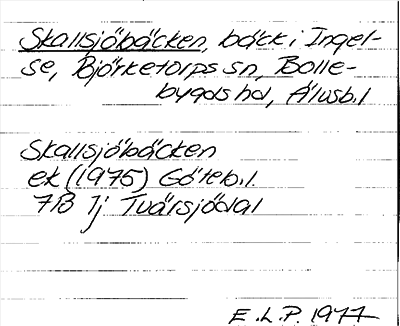 Skallsjöbäcken, bäck i Ingel-
se, Björketorps sn, Bolle-
bygds hd, Älvsb.l
Skallsjöbäcken
ek (1975) Göteb.l.
7B 1j Tvärsjödal
E.L.P. 1977